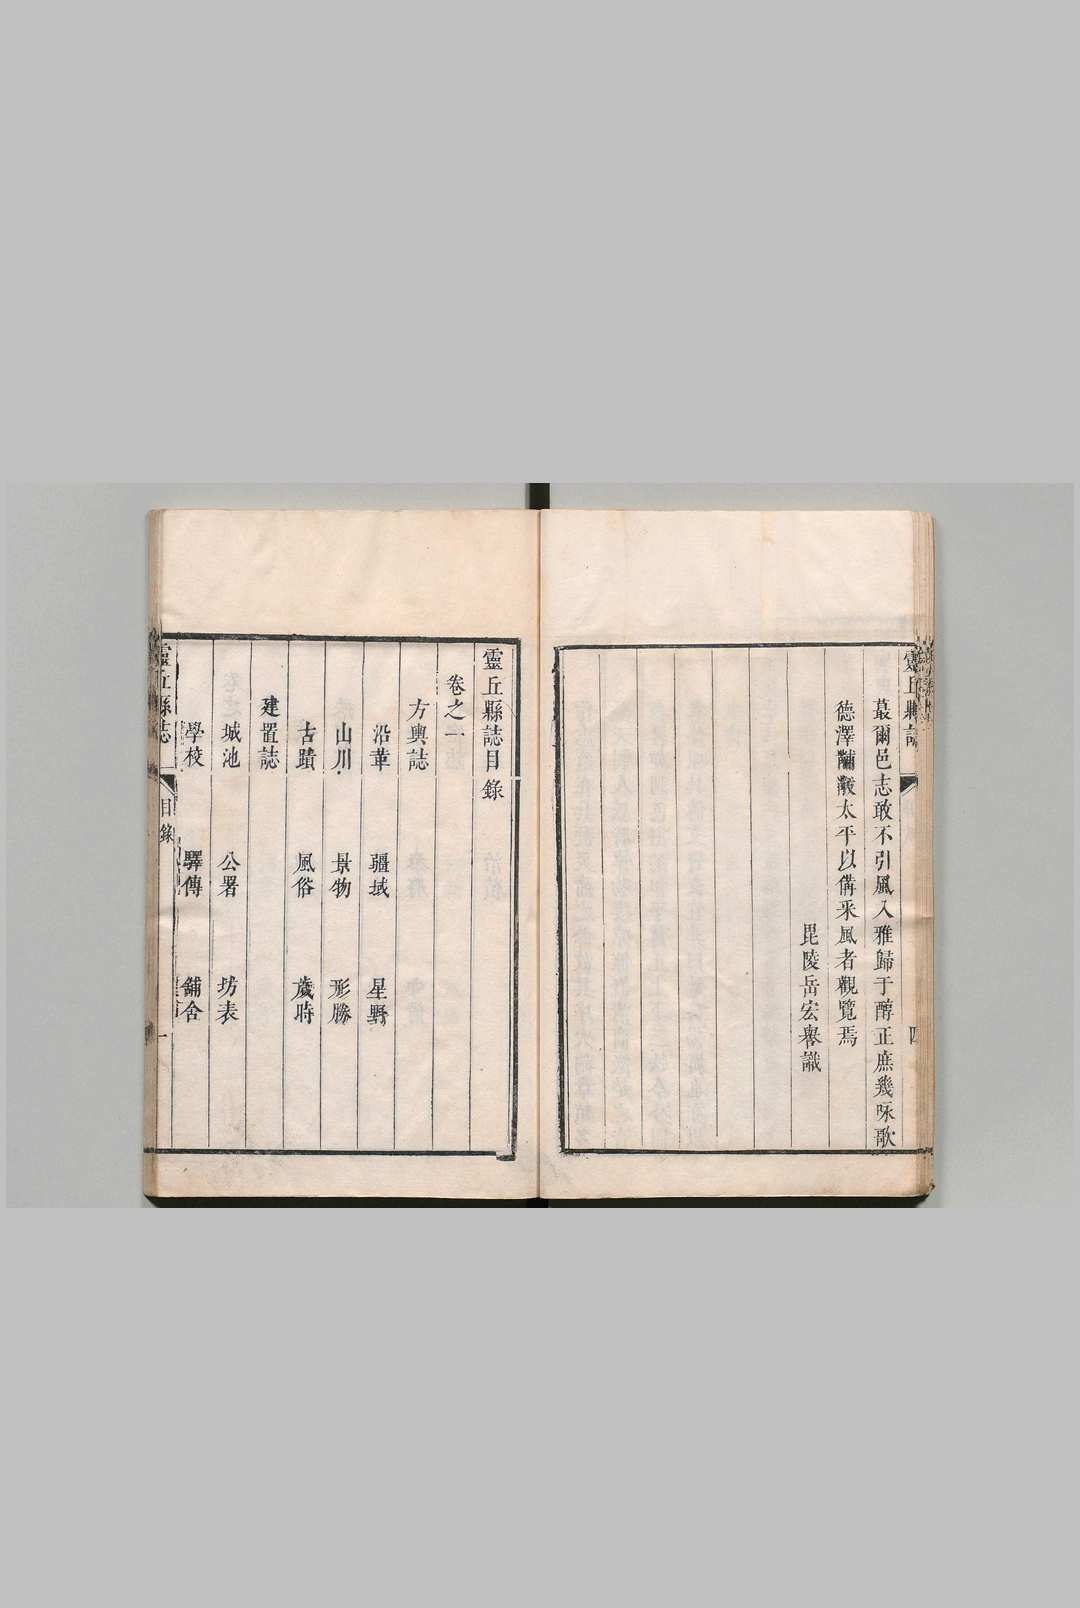 靈丘縣誌
四
蕞爾邑志敢不引風入雅歸于醇正庶幾咏歌
德澤黼黻太平以備采風者觀覽焉
毘陵岳宏譽識
靈丘縣誌目錄
卷之一
方輿誌
沿革 疆域 星野
山川 景物 形勝
古蹟 風俗 歲時
建置誌
城池 公署 坊表
學校 驛傳 舖舍
靈丘縣誌 目錄 一